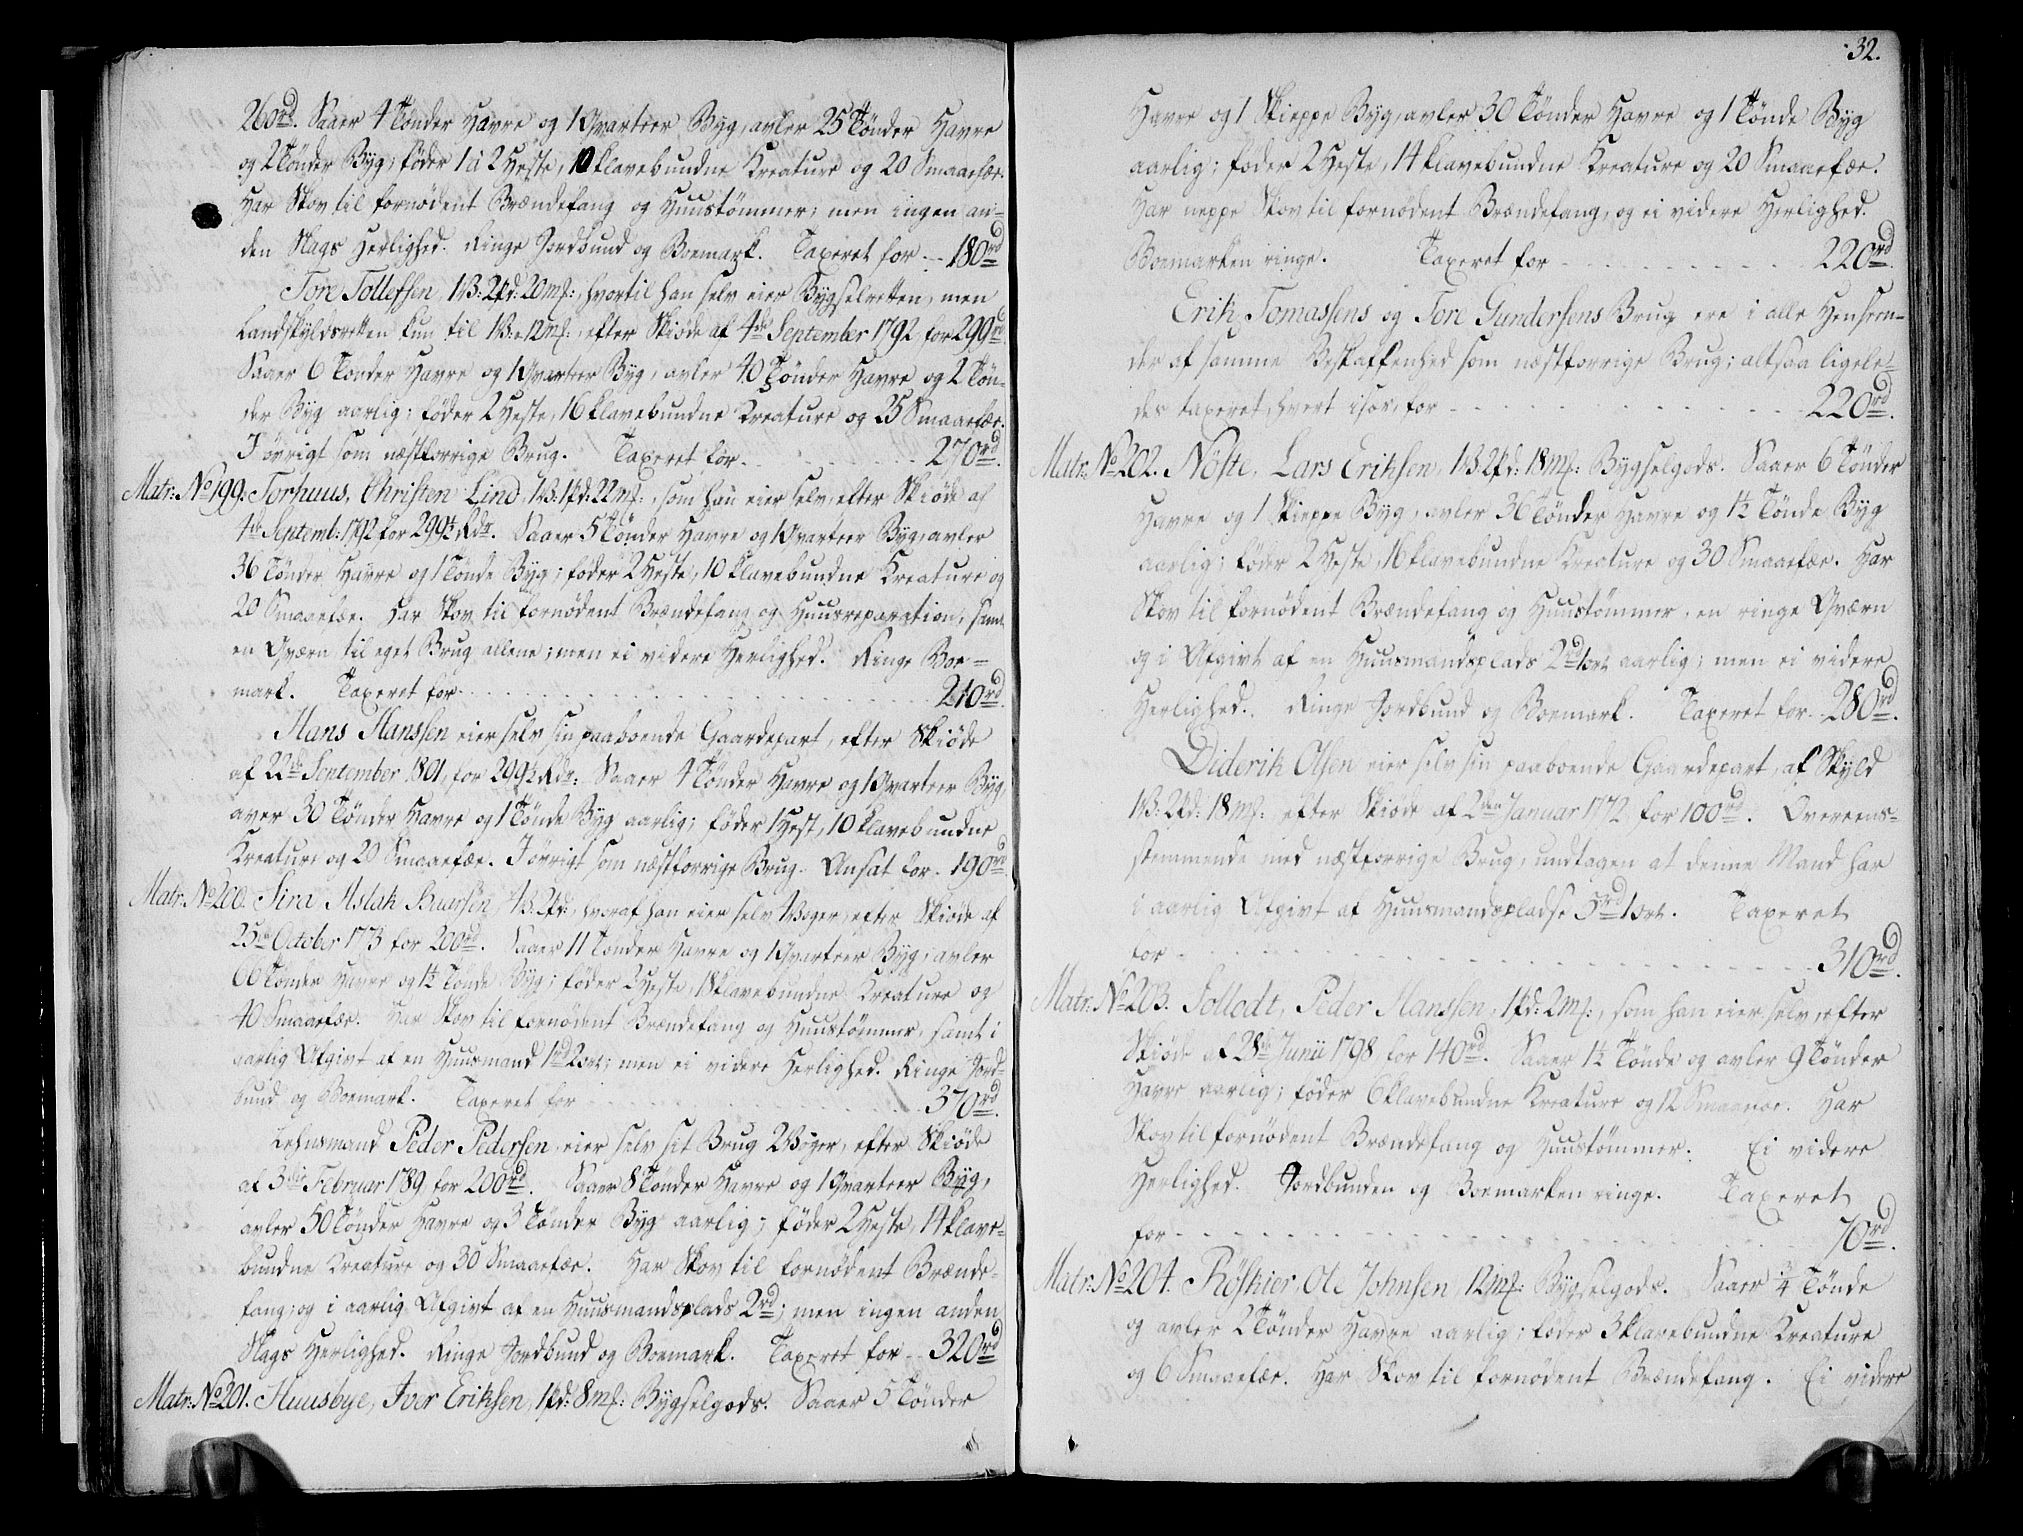 260rd. Saaer 4 Tönder Havre og 1 Qvarteer Byg, avler 25 Tönder Havre
og 2 Tönder Byg; föder 1 à 2 Heste, 10 klavebundne Kreature og 20 Smaaefæe.
Har Skov til fornödent Brændefang og Huustömmer; men ingen an-
den Slags Herlighed. Ringe Jordbund og Boemark. Taxeret for -- 180rd
Tore Tollefsen, 1 B: 2 pd: 20 mf:, hvortil han selv eier Bygselretten, men
Landskyldsretten kun til 1 B: 12 mf:, efter Skiöde af 4de September 1792, for 299rd.
Saaer 6 Tönder Havre og 1 Qvarteer Byg, avler 40 Tönder Havre og 2 Tön-
der Byg aarlig; föder 2 Heste, 16 klavebundne Kreature og 25 Smaaefæe.
I övrigt som næstforrige Brug. Taxeret for - - - 270rd.
Matr: No 199. Torhuus, Christen Lind, 1 B: 1 pd: 22 mf:, som han eier selv, efter Skiöde af
4de Septemb: 1792 for 299½ Rdr. Saaer 5 Tönder Havre og 1 Qvarteer Byg, avler
36 Tönder Havre og 1 Tönde Byg; föder 2 Heste, 10 klavebundne Kreature og
20 Smaaefæe. Har Skov til fornödent Brændefang og Huusreparation, samt
en Qværn til eget Brug allene; men ei videre Herlighed. Ringe Boe-
mark. Taxeret for - - - 210rd.
Hans Hanssen eier selv sin paaboende Gaardepart, efter Skiöde
af 22de September 1801, for 299½ Rdr: Saaer 4 Tönder Havre og 1 Qvarteer Byg,
aver 30 Tönder Havre og 1 Tönde Byg aarlig; föder 1 Hest, 10 klavebundne
Kreature og 20 Smaaefæe. I övrigt som næstforrige Brug. Ansat for - 190rd
Matr: No 200. Sira, Aslak Buersen, 4 B: 2 pd:, hvoraf han eier selv 4 Voger, efter Skiöde af
25de October 1773 for 200rd. Saaer 11 Tönder Havre og 1 Qvarteer Byg, avler
66 Tönder Havre og 1½ Tönde Byg; föder 2 Heste, 18 klavebundne Kreature og
40 Smaaefæe. Har Skov til fornödent Brændefang og Huustömmer, samt i
aarlig Afgivt af en Huusmand 1rd 2ort; men ei videre Herlighed. Ringe Jord-
bund og Boemark. Taxeret for - - - 370rd.
Lehnsmand Peder Pedersen, eier selv sit Brug 2 Voger, efter Skiöde
af 3die Februar 1789, for 200rd. Saaer 8 Tönder Havre og 1 Qvarteer Byg,
avler 50 Tönder Havre og 3 Tönder Byg aarlig; föder 2 Heste, 14 klave-
bundne Kreature og 30 Smaaefæe. Har Skov til fornödent Brænde-
fang; og i aarlig Afgivt af en Huusmandsplads 2rd; men ingen anden
Slags Herlighed. Ringe Jordbund og Boemark. Taxeret for -- 320rd
Matr: No 201. Huusbye, Iver Eriksen, 1 pd: 8 mf: Bygselgods. Saaer 5 Tönder
32.
Havre og 1 Skieppe Byg, avler 30 Tönder Havre og 1 Tönde Byg
aarlig; föder 2 Heste, 14 klavebundne Kreature og 20 Smaaefæe.
Har neppe Skov til fornödent Brændefang, og ei videre Herlighed.
Boemarken ringe. Taxeret for - - - 220rd.
Erik Tomassens og Tore Gundersens Brug ere i alle Henseen-
der af samme Beskaffenhed som næstforrige Brug; altsaa ligele-
des taxeret, hvert især, for - - - 220rd.
Matr: No 202. Nöste, Lars Eriksen, 1 B 2 pd: 18 mf: Bygselgods. Saaer 6 Tönder
Havre og 1 Skieppe Byg, avler 36 Tönder Havre og 1½ Tönde Byg
aarlig; föder 2 Heste, 16 klavebundne Kreature og 30 Smaaefæe. Har
Skov til fornödent Brændefang og Huustömmer, en ringe Qværn
og i Afgivt af en Huusmandsplads 2rd 1ort aarlig; men ei videre
Herlighed. Ringe Jordbund og Boemark. Taxeret for - 280rd.
Diderik Olsen eier selv sin paaboende Gaardepart, af Skyld
1 B: 2 pd: 18 mf: efter Skiöde af 2den Januar 1772, for 100rd. Overeens-
stemmende med næstforrige Brug, undtagen at denne Mand har
i aarlig Afgivt af Huusmandspladse 5rd 1ort. Taxeret
for - - - 310rd.
Matr: No 203. Tollodt, Peder Hanssen, 1 pd: 2 mf:, som han eier selv, efter
Skiöde af 28de Junii 1798, for 140rd. Saaer 1½ Tönde og avler 9 Tönder
Havre aarlig; föder 6 klavebundne Kreature og 12 Smaaefæe. Har
Skov til fornödent Brændefang og Huustömmer. Ei videre
Herlighed. Jordbunden og Boemarken ringe. Taxeret
for - - - 70rd.
Matr: No 204. Röskier, Ole Johnsen, 12 mf: Bygselgods. Saaer ¾ Tönde
og avler 2 Tönder Havre aarlig; föder 3 klavebundne Kreature
og 6 Smaaefæe. Har Skov til fornödent Brændefang. Ei videre